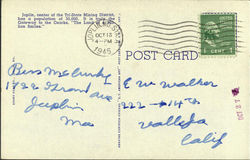 Joplin, center of the Tri-State Mining District,
has a population of 35,000. It is truly the
Gateway to the Ozarks, "The Land of a
ion Smiles."
JOPLIN
OCT 13
4-PM
1945
POST CARD
1 CENT 1
1922 Grand Ave
Joplin
Mo
E W Walker
222-14th
Vallejo
Calif